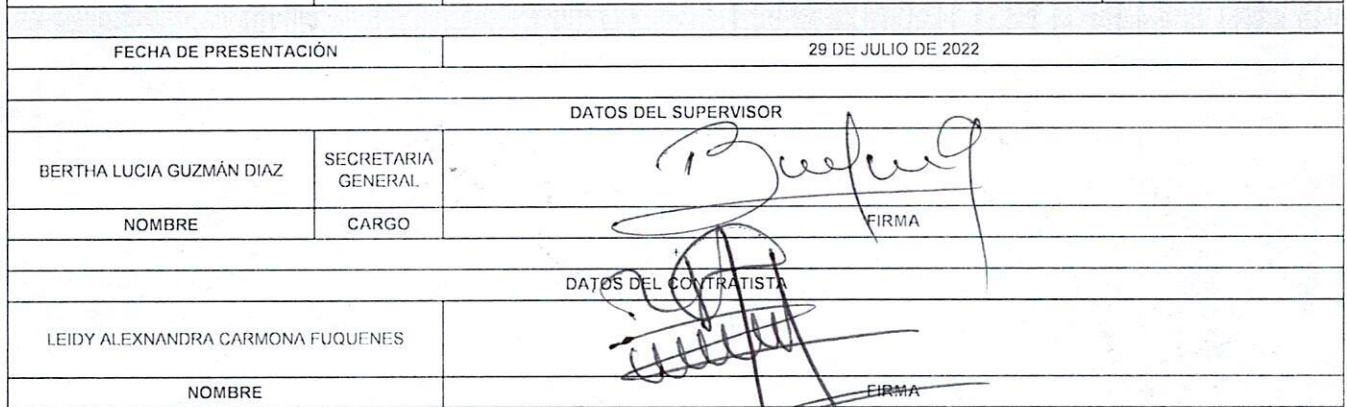 FECHA DE PRESENTACIÓN 29 DE JULIO DE 2022
DATOS DEL SUPERVISOR
BERTHA LUCIA GUZMÁN DIAZ SECRETARIA GENERAL
NOMBRE CARGO FIRMA
DATOS DEL CONTRATISTA
LEIDY ALEXNANDRA CARMONA FUQUENES
NOMBRE FIRMA